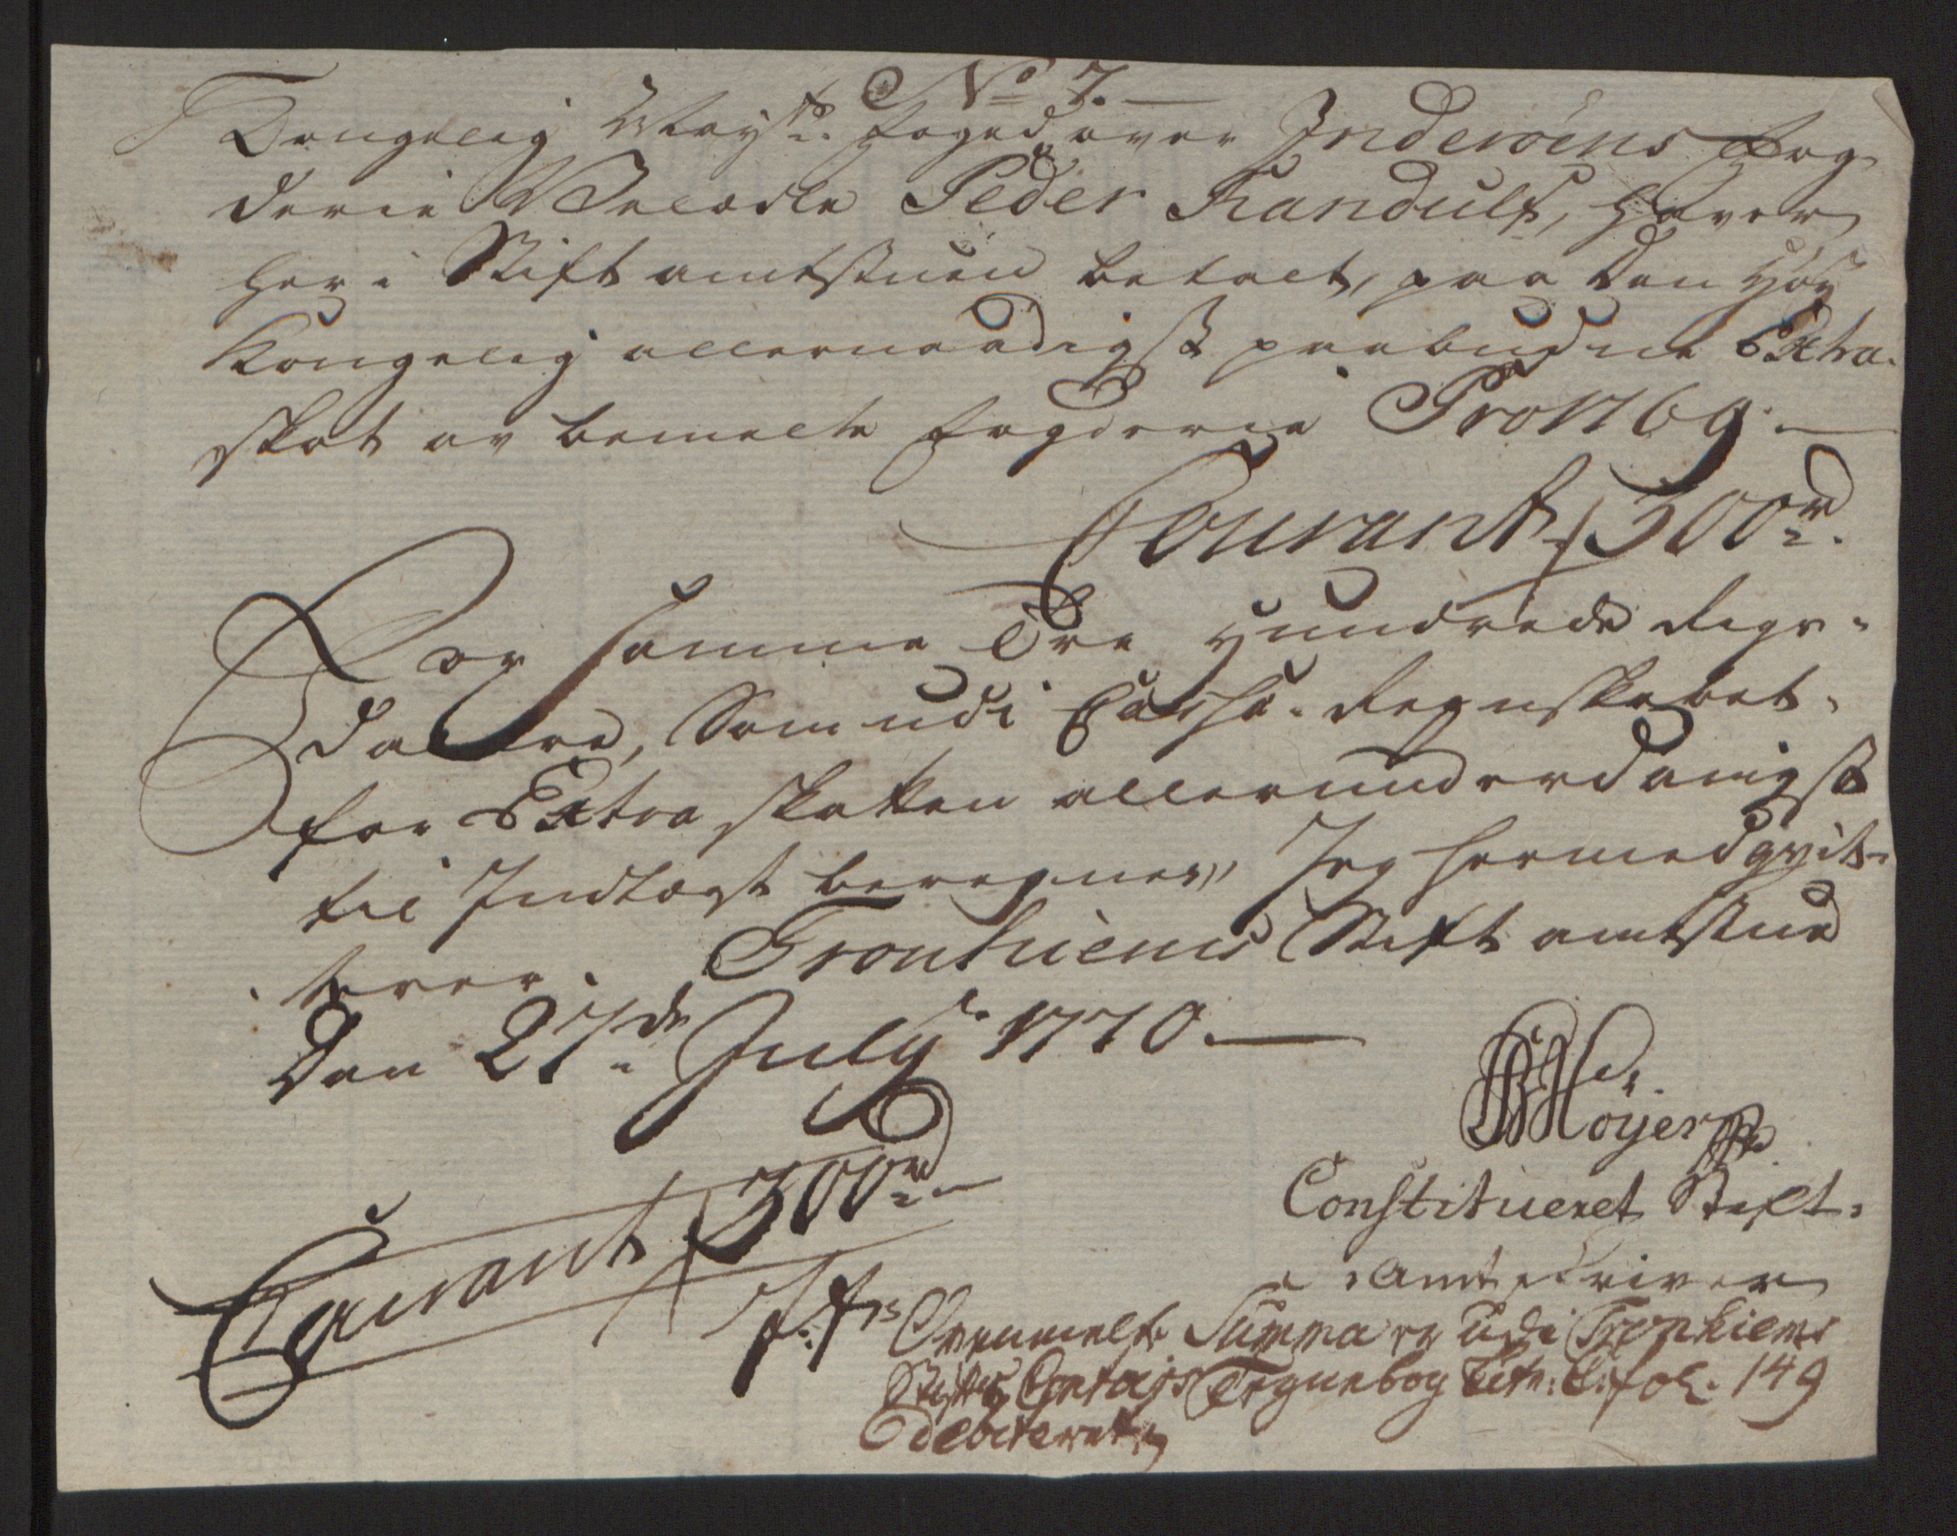 No 7.
Kongelig Mayts. foged over Inderöens fog-
derie Velædle Peder Randulf, haver
her i Stiftamtstuen betalt, paa den høy
Kongelig allernaadigst paabudne Extra-
skat av bemelte fogderie Pro 1769.
Courant 300 rd.
For samme Tre Hundrede Rigs-
dallere, Som udi Cassa-Regnskabet
for Extra skatten allerunderdanigst
til Indtægt beregnes, Jeg hermed qvit-
terer. Tronhiems Stiftamtstue
Den 27de July 1770.
Höyer
Constitueret Stift-
Amtskriver
Courant 300 rd.
Ovenmelte Summa er udi Tronhiems
Stifts Contoirs Tegnebog Litr. C. fol. 149
debiteret